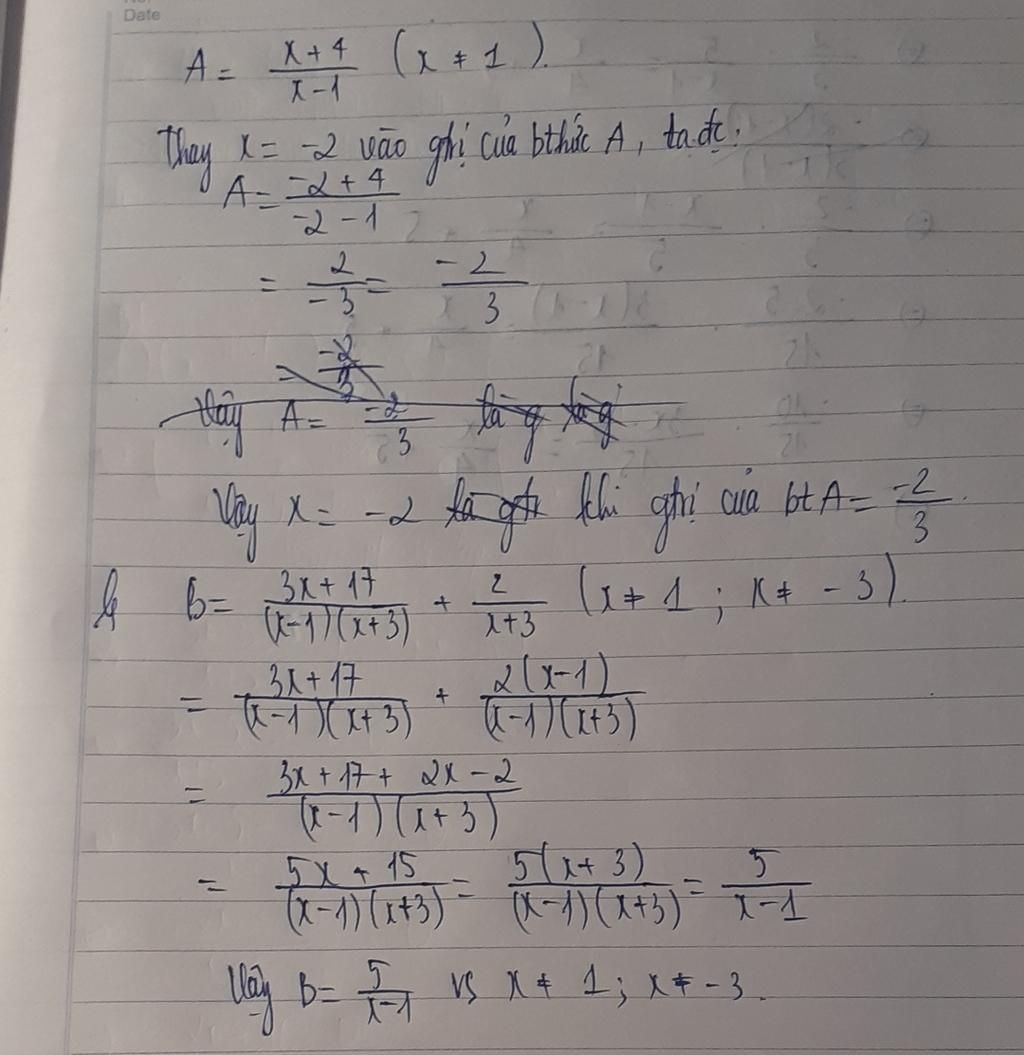 Date
A = \frac{x+4}{x-1} (x ≠ 1).
Thay x = -2 vào gtrị của bthức A, ta đc:
A = \frac{-2+4}{-2-1}
= \frac{2}{-3} = \frac{-2}{3}
= \frac{-2}{3}
Vậy A = \frac{-2}{3} là g là g
Vậy x = -2 là gtr khi gtrị của bt A = \frac{-2}{3}.
b, B = \frac{3x+17}{(x-1)(x+3)} + \frac{2}{x+3} (x ≠ 1 ; x ≠ -3).
= \frac{3x+17}{(x-1)(x+3)} + \frac{2(x-1)}{(x-1)(x+3)}
= \frac{3x+17+2x-2}{(x-1)(x+3)}
= \frac{5x+15}{(x-1)(x+3)} = \frac{5(x+3)}{(x-1)(x+3)} = \frac{5}{x-1}
Vậy B = \frac{5}{x-1} vs x ≠ 1 ; x ≠ -3.